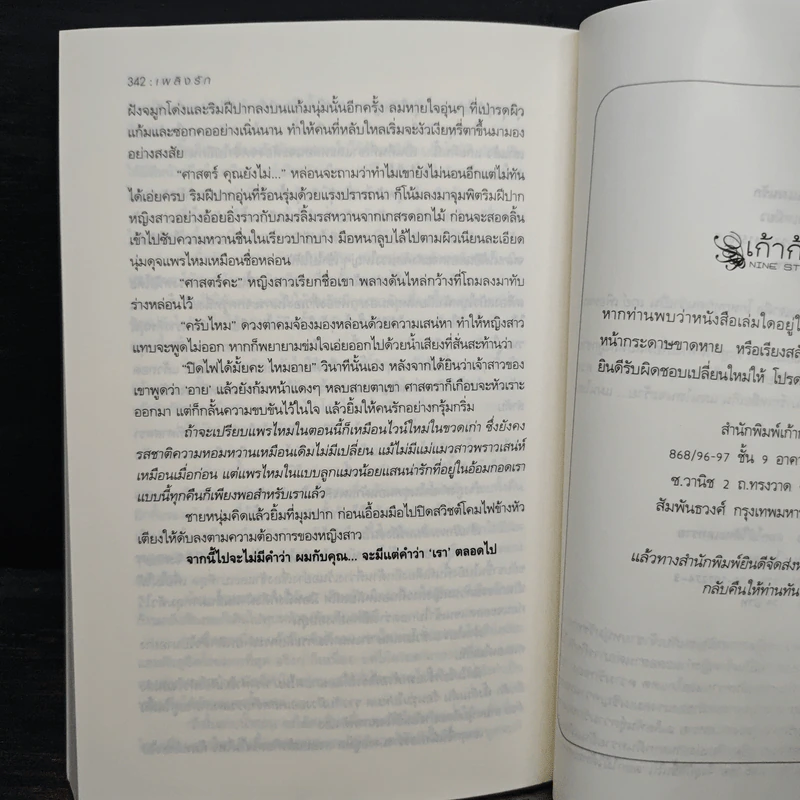 342 : เพลิงรัก
ฝังจมูกโด่งและริมฝีปากลงบนแก้มนุ่มนั้นอีกครั้ง ลมหายใจอุ่นๆ ที่เป่ารดผิว
แก้มและซอกคออย่างเนิ่นนาน ทำให้คนที่หลับใหลเริ่มจะงัวเงียหรี่ตาขึ้นมามอง
อย่างสงสัย
“ศาสตร์ คุณยังไม่...” หล่อนจะถามว่าทำไมเขายังไม่นอนอีกแต่ไม่ทัน
ได้เอ่ยครบ ริมฝีปากอุ่นที่ร้อนรุ่มด้วยแรงปรารถนา ก็โน้มลงมาจุมพิตริมฝีปาก
หญิงสาวอย่างอ้อยอิ่งราวกับภมรลิ้มรสหวานจากเกสรดอกไม้ ก่อนจะสอดลิ้น
เข้าไปซับความหวานชื่นในเรียวปากบาง มือหนาลูบไล้ไปตามผิวเนียนละเอียด
นุ่มดุจแพรไหมเหมือนชื่อหล่อน
“ศาสตร์คะ” หญิงสาวเรียกชื่อเขา พลางดันไหล่กว้างที่โถมลงมาทับ
ร่างหล่อนไว้
“ครับไหม” ดวงตาคมจ้องมองหล่อนด้วยความเสน่หา ทำให้หญิงสาว
แทบจะพูดไม่ออก หากก็พยายามข่มใจเอ่ยออกไปด้วยน้ำเสียงที่สั่นสะท้านว่า
“ปิดไฟได้มั้ยคะ ไหมอาย” วินาทีนั้นเอง หลังจากได้ยินว่าเจ้าสาวของ
เขาพูดว่า ‘อาย’ แล้วยังก้มหน้าแดงๆ หลบสายตาเขา ศาสตราก็เกือบจะหัวเราะ
ออกมา แต่ก็กลั้นความขบขันไว้ในใจ แล้วยิ้มให้คนรักอย่างกรุ้มกริ่ม
ถ้าจะเปรียบแพรไหมในตอนนี้ก็เหมือนไวน์ใหม่ในขวดเก่า ซึ่งยังคง
รสชาติความหอมหวานเหมือนเดิมไม่มีเปลี่ยน แม้ไม่มีแม่แมวสาวพราวเสน่ห์
เหมือนเมื่อก่อน แต่แพรไหมในแบบลูกแมวน้อยแสนน่ารักที่อยู่ในอ้อมกอดเรา
แบบนี้ทุกคืนก็เพียงพอสำหรับเราแล้ว
ชายหนุ่มคิดแล้วยิ้มที่มุมปาก ก่อนเอื้อมมือไปปิดสวิชต์โคมไฟข้างหัว
เตียงให้ดับลงตามความต้องการของหญิงสาว
จากนี้ไปจะไม่มีคำว่า ผมกับคุณ... จะมีแต่คำว่า ‘เรา’ ตลอดไป
เก้าก้
NINE ST
หากท่านพบว่าหนังสือเล่มใดอยู่ใ
หน้ากระดาษขาดหาย หรือเรียงสลั
ยินดีรับผิดชอบเปลี่ยนใหม่ให้ โปรด
สำนักพิมพ์เก้าก
868/96-97 ชั้น 9 อาคา
ซ.วานิช 2 ถ.ทรงวาด
สัมพันธวงศ์ กรุงเทพมหา
แล้วทางสำนักพิมพ์ยินดีจัดส่งห
กลับคืนให้ท่านทัน